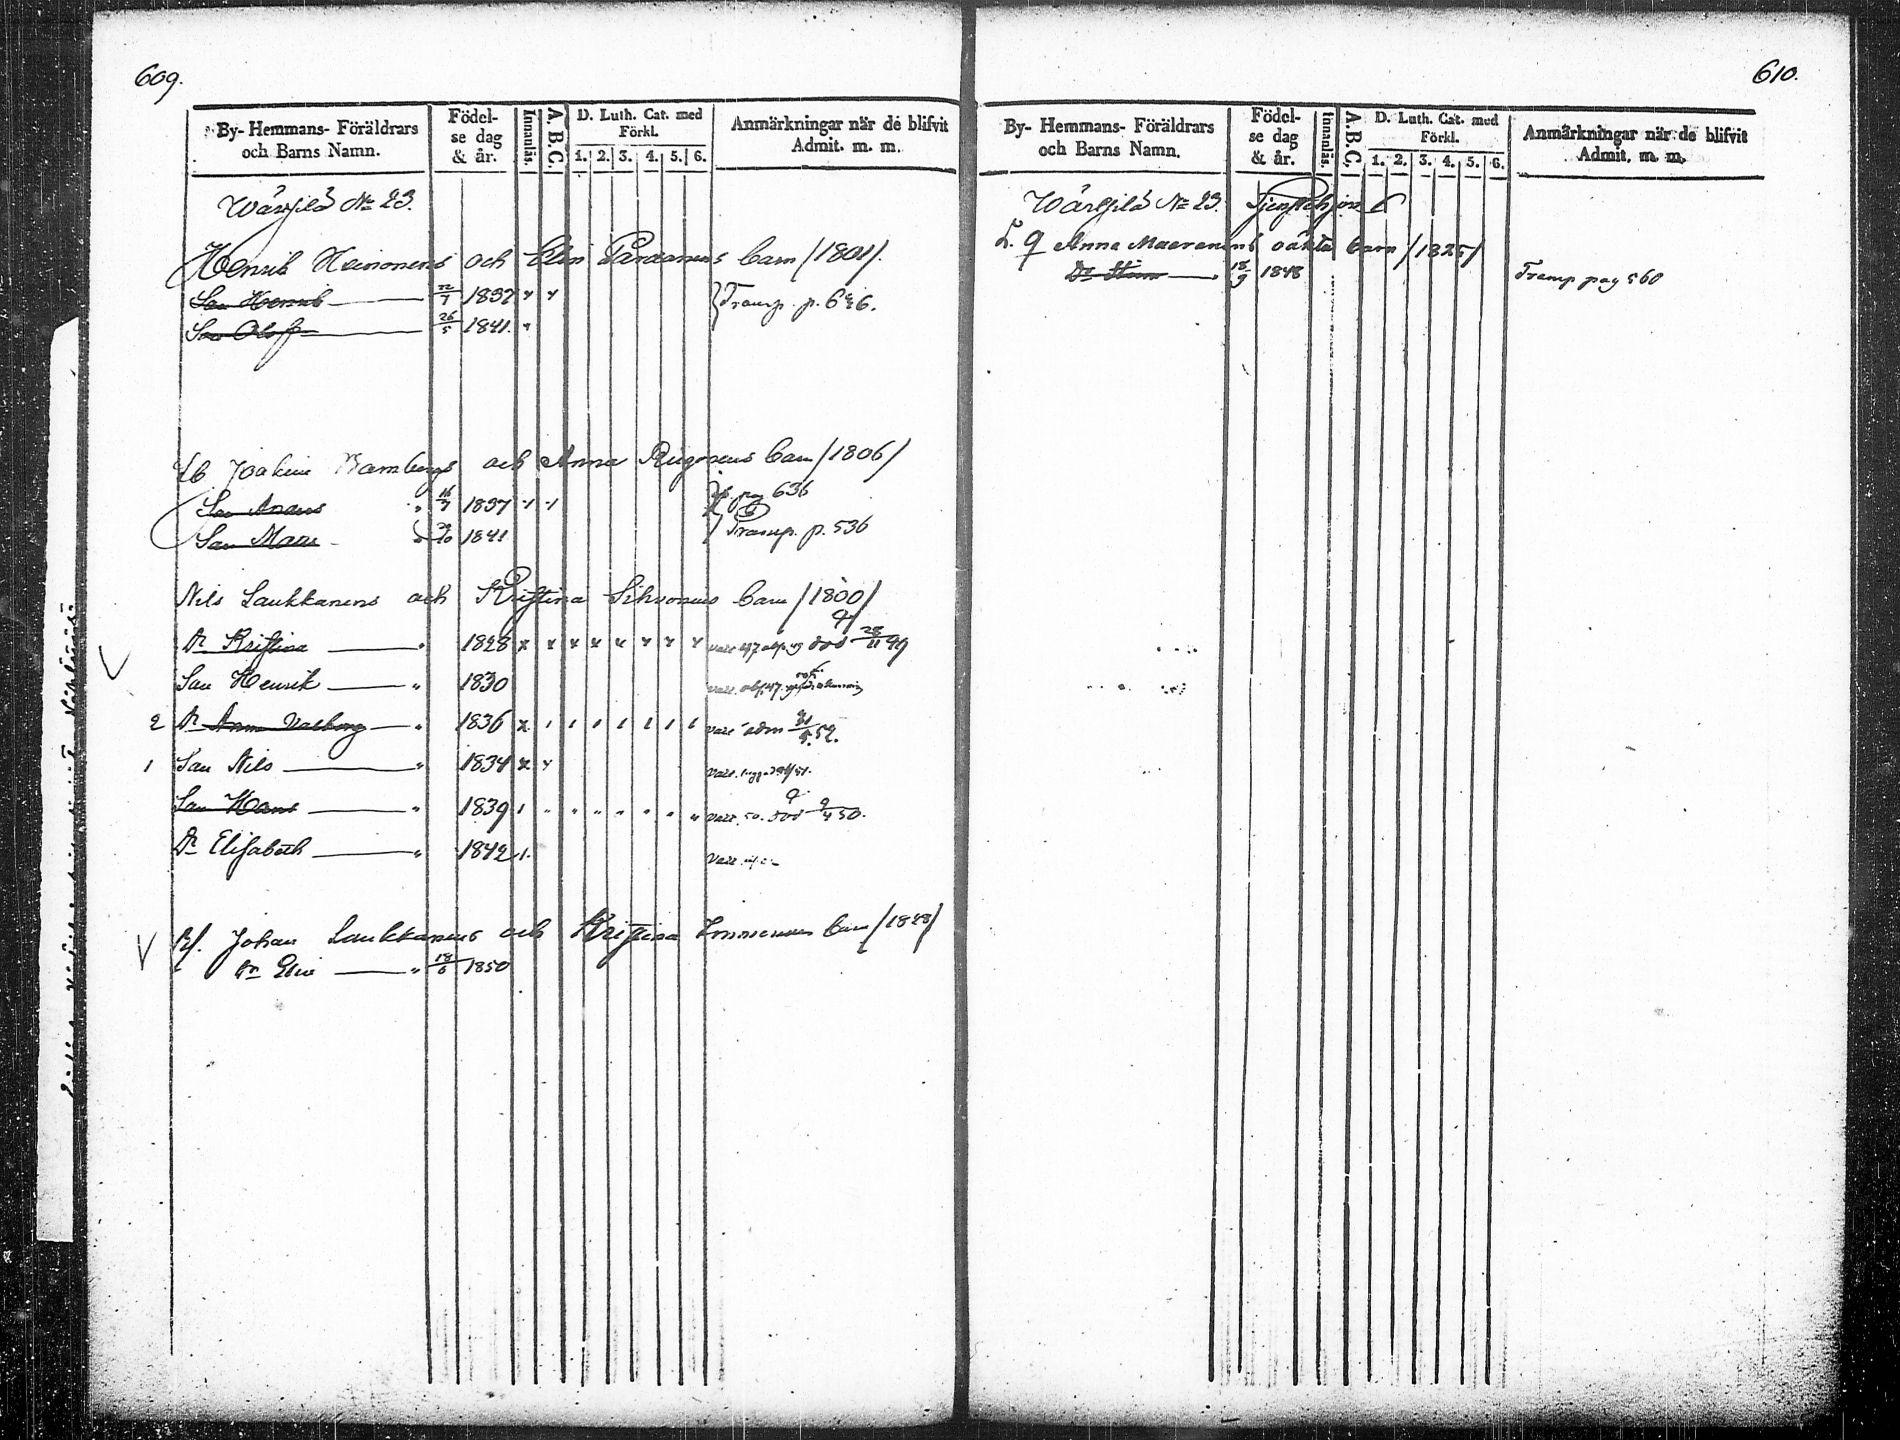 609.
By- Hemmans- Föräldrars och Barns Namn. Födel-se dag & år. Innanläs. A.B.C. D. Luth. Cat. med Förkl. 1. 2. 3. 4. 5. 6. Anmärkningar när de blifvit Admit. m. m.
Wärtsilä No 23.
Henrik Heinonens och Elin barn /1801/.
Son Henrik 22/7 1837 Transp. p. 646.
Son Olof 26/5 1841.
Joakim och Anna barn /1806/
Son 16/7 1837 pag 636
Son 1841 Transp. p. 536
Nils Laukkanens och Kristina Sihvonens barn /1800/
Dr Kristina 1828 död 28/11 49
Son Henrik 1830
2 Dr Anna Valborg 1836 adm 52.
1 Son Nils 1834
Son Hans 1839 död 9/4 50.
Dr Elisabeth 1842
Johan Laukkanens och Kristina barn /1828/
Dr Elin 18/6 1850
610.
By- Hemmans- Föräldrars och Barns Namn. Födel-se dag & år. Innanläs. A.B.C. D. Luth. Cat. med Förkl. 1. 2. 3. 4. 5. 6. Anmärkningar när de blifvit Admit. m. m.
Wärtsilä No 23. Tjenstehjon
Anna oäkta barn /1825/
Dr 18/9 1848 Transp pag 560